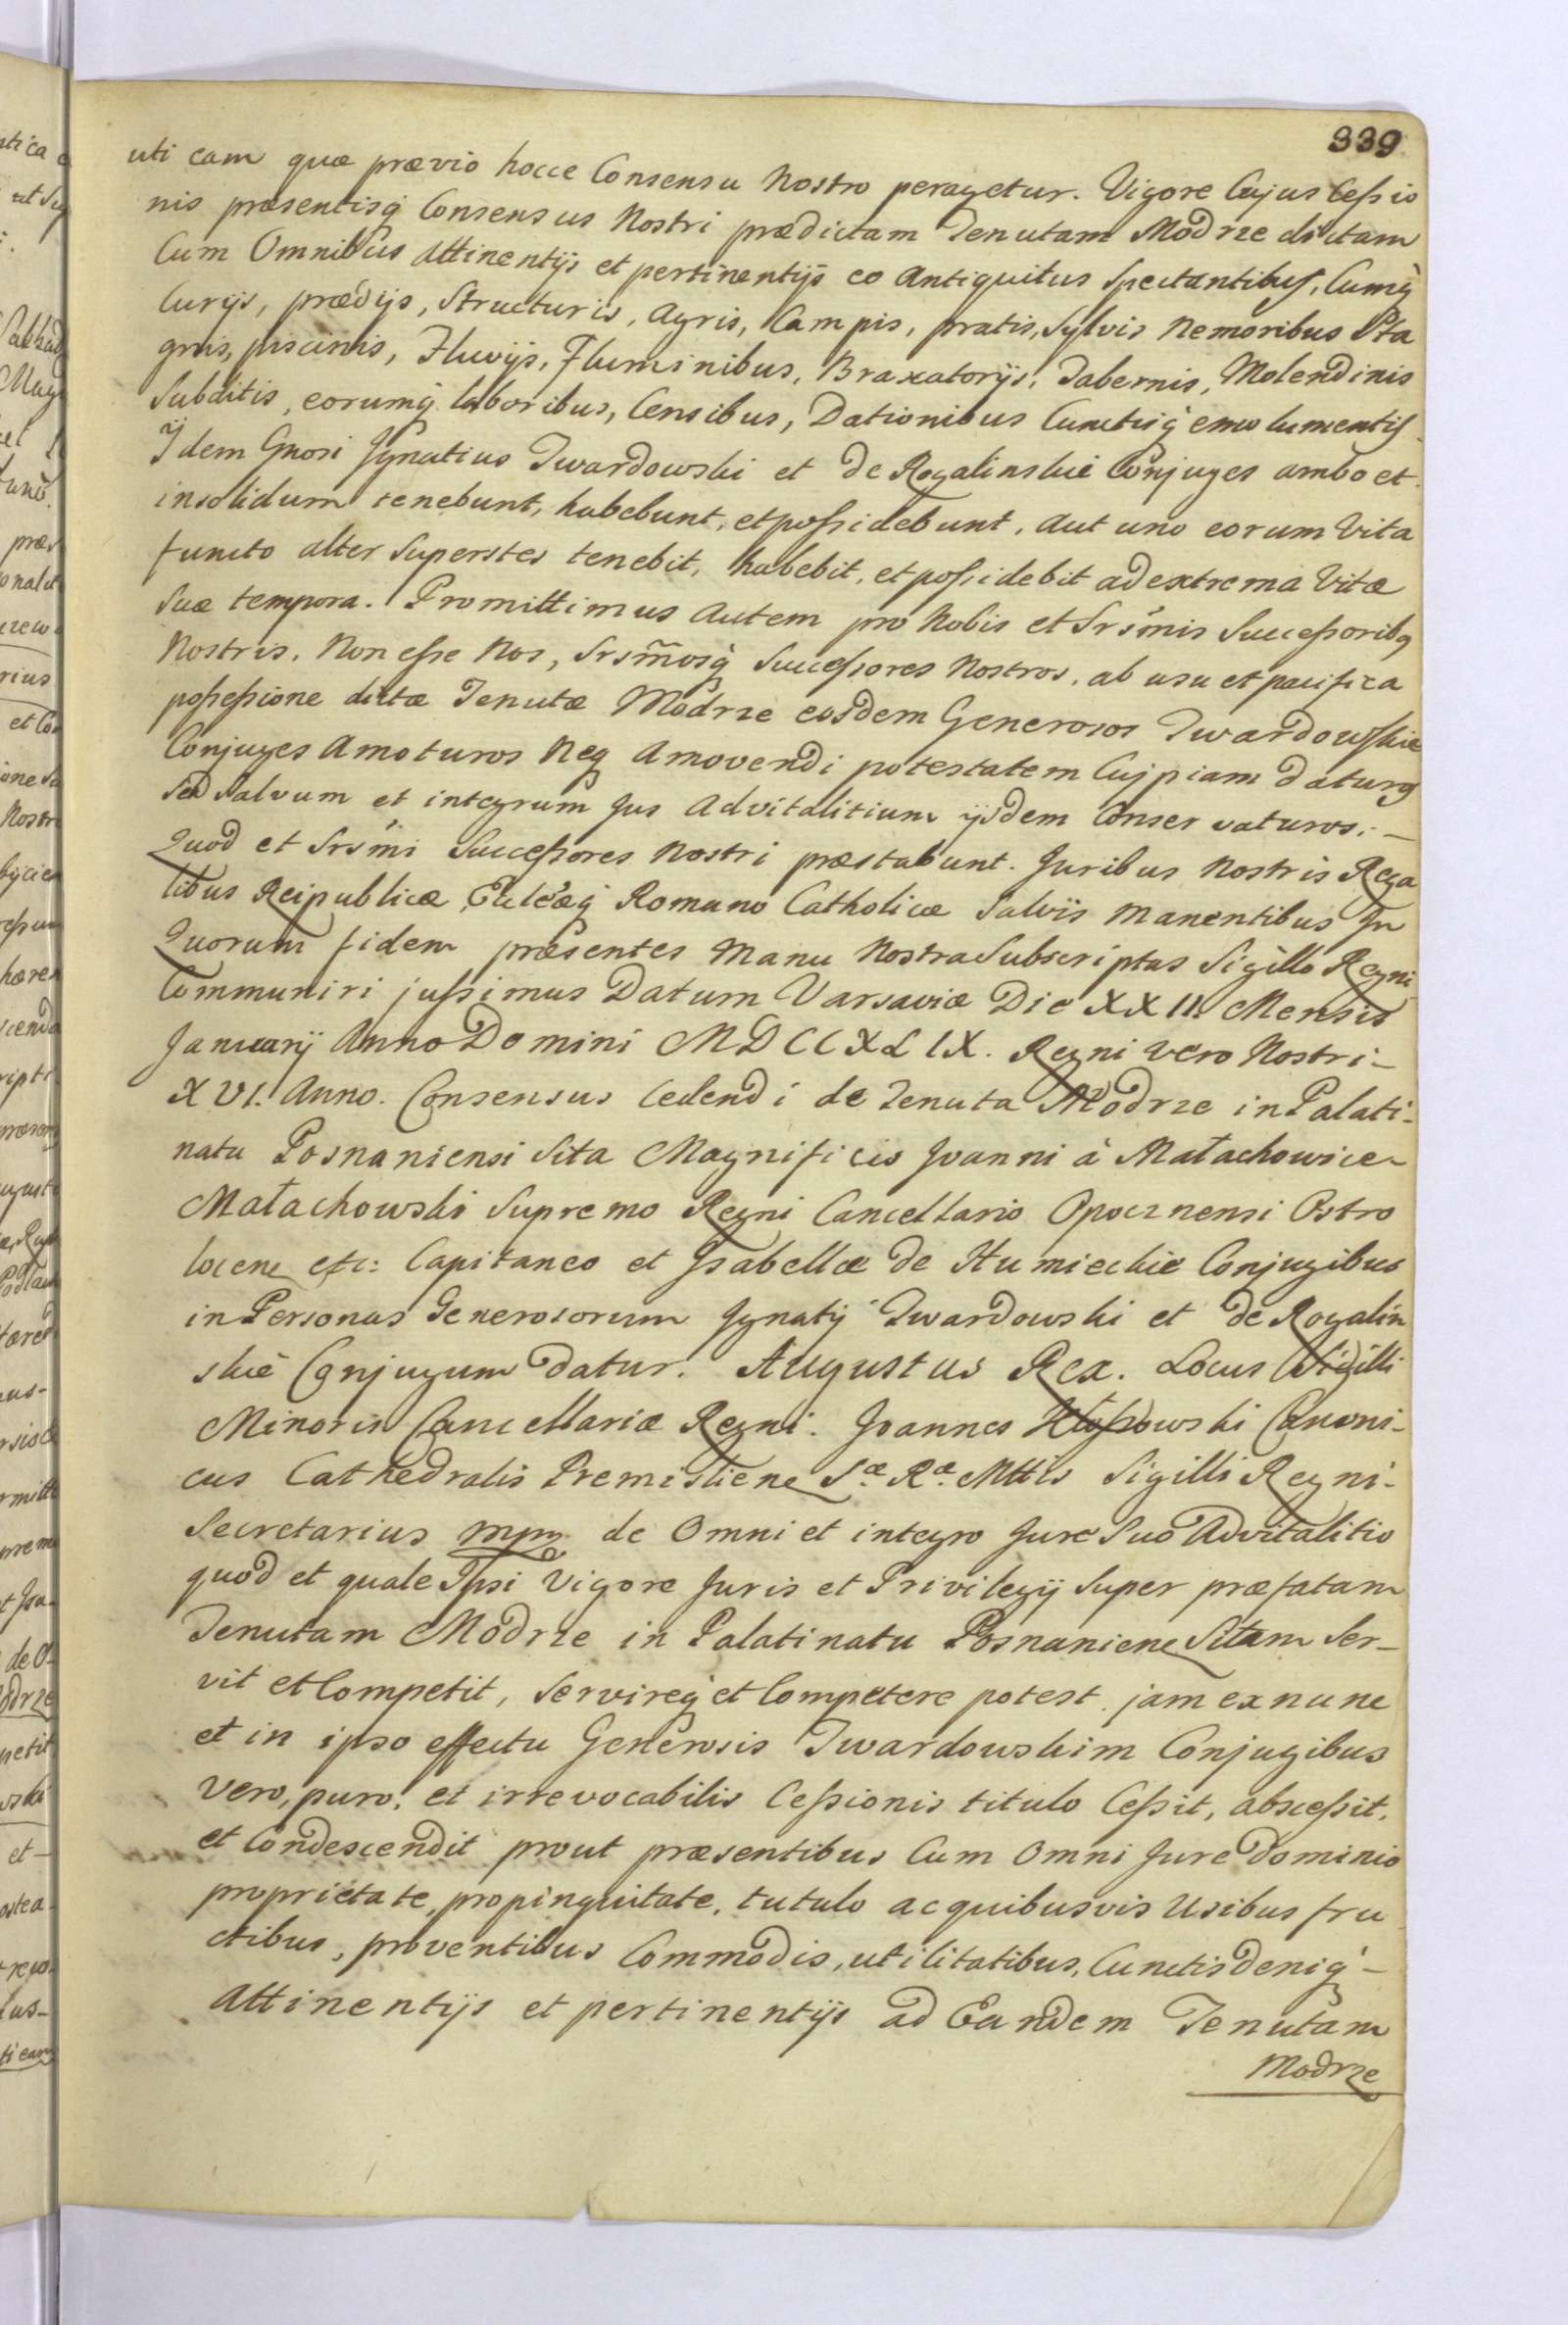 339
uti eam quæ prævio hocce Consensu Nostro peragetur. Vigore Cujus Cessio
nis præsentisq́ Consensus Nostri prædictam Tenutam Modrze dictam
Cum Omnibus attinentijs et pertinentijs eo Antiquitus Spectantibus, Cumq́
Curijs, prædijs, Structuris, Agris, Campis, pratis, Sylvis Nemoribus Sta
gnis, piscinis, Fluvijs, Fluminibus, Braxatorijs, Tabernis, Molendinis
Subditis, eorumq́ laboribus, Censibus, Dationibus Cunctisq́ emolumentis
Ijdem Gnosi Ignatius Twardowski et de Rogalinskie Conjuges ambo et
insolidum tenebunt, habebunt, et possidebunt, aut uno eorum Vita
functo alter Superstes tenebit, habebit, et possidebit ad extrema Vitæ
Suæ tempora. Promittimus Autem pro Nobis et Srsm̃is Successoribq
Nostris, Non esse Nos, Srsm̃osq́ Successores Nostros, ab usu et pacifica
possessione dictæ Tenutæ Modrze eosdem Generosos Twardowskie
Conjuges Amoturos Neq Amovendi potestatem Cujpiam daturq
Sed Salvum et integrum Jus Advitalitium ijsdem Conservaturos. –
Quod et Srsm̃i Successores Nostri præstabunt. Juribus Nostris Rega
libus Reipublicæ, Eccleæq́ Romano Catholicæ Salvis manentibus In
Quorum fidem præsentes Manu Nostra Subscriptas Sigillo Regni
Communiri jussimus Datum Varsaviæ Die XXII. Mensis
Januarij Anno Domini MDCCXLIX. Regni vero Nostri –
XVI. Anno. Consensus Cedendi de Tenuta Modrze in Palati-
natu Posnaniensi Sita Magnificis Joanni à Małachowice
Małachowski Supremo Regni Cancellario Opocznensi Ostro
locen etc: Capitaneo et Isabellæ de Humieckie Conjugibus
in Personas Generosorum Ignatij Twardowski et de Rogalin
skie Conjugum datur. Augustus Rex. Locus Sigilli
Minoris Cancellariæ Regni. Joannes Kłossowski Canoni-
cus Cathedralis Premisliene Sæ. Ræ. Mttis Sigilli Regni-
Secretarius mpp de Omni et integro Jure Suo Advitalitio
quod et quale Ipsi Vigore Juris et Privilegij Super præfatam
Tenutam Modrze in Palatinatu Posnaniene Sitam Ser-
vit et Competit, Servireq́ et Competere potest, jam ex nunc
et in ipso effectu Generosis Twardowskim Conjugibus
vero, puro, et irrevocabilis Cessionis titulo Cessit, abscessit,
et Condescendit prout præsentibus Cum Omni Jure Dominio
proprietate, propinquitate, tutulo ac quibusvis Usibus fru
ctibus, proventibus Commodis, utilitatibus, Cunctis deniq́ –
Attinentijs et pertinentijs ad Eandem Tenutam
Modrze